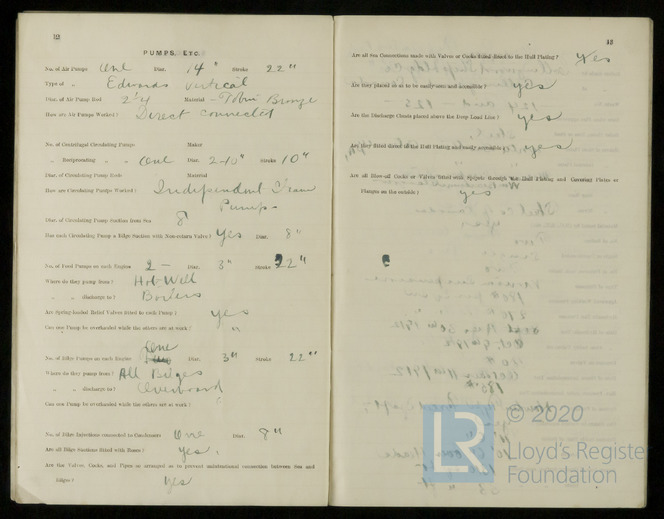 12
PUMPS, ETC.
No. of Air Pumps One Diar. 14" Stroke 22"
Type of " Edwards Vertical
Diar. of Air Pump Rod 2 1/4 Material Tobin Bronze
How are Air Pumps Worked? Direct connected
No. of Centrifugal Circulating Pumps Maker
" Reciprocating " " One Diar. 2-10" Stroke 10"
Diar. of Circulating Pump Rods Material
How are Circulating Pumps Worked? Independent Steam
Pump
Diar. of Circulating Pump Suction from Sea 8"
Has each Circulating Pump a Bilge Suction with Non-return Valve? Yes Diar. 8"
No. of Feed Pumps on each Engine 2 Diar. 3" Stroke 22"
Where do they pump from? Hot Well
" " discharge to? Boilers
Are Spring-loaded Relief Valves fitted to each Pump? yes
Can one Pump be overhauled while the others are at work? "
One
No. of Bilge Pumps on each Engine Diar. 3" Stroke 22"
Where do they pump from? All Bilges
" " discharge to? Overboard
Can one Pump be overhauled while the others are at work?
No. of Bilge Injections connected to Condensers One Diar. 8"
Are all Bilge Suctions fitted with Roses? Yes.
Are the Valves, Cocks, and Pipes so arranged as to prevent unintentional connection between Sea and
Bilges? Yes
13
Are all Sea Connections made with Valves or Cocks fitted direct to the Hull Plating? Yes
Are they placed so as to be easily seen and accessible? yes
Are the Discharge Chests placed above the Deep Load Line? yes
Are they fitted direct to the Hull Plating and easily accessible? yes
Are all Blow-off Cocks or Valves fitted with Spigots through the Hull Plating and Covering Plates or
Flanges on the outside? yes
© 2020
LR
Lloyd's Register
Foundation